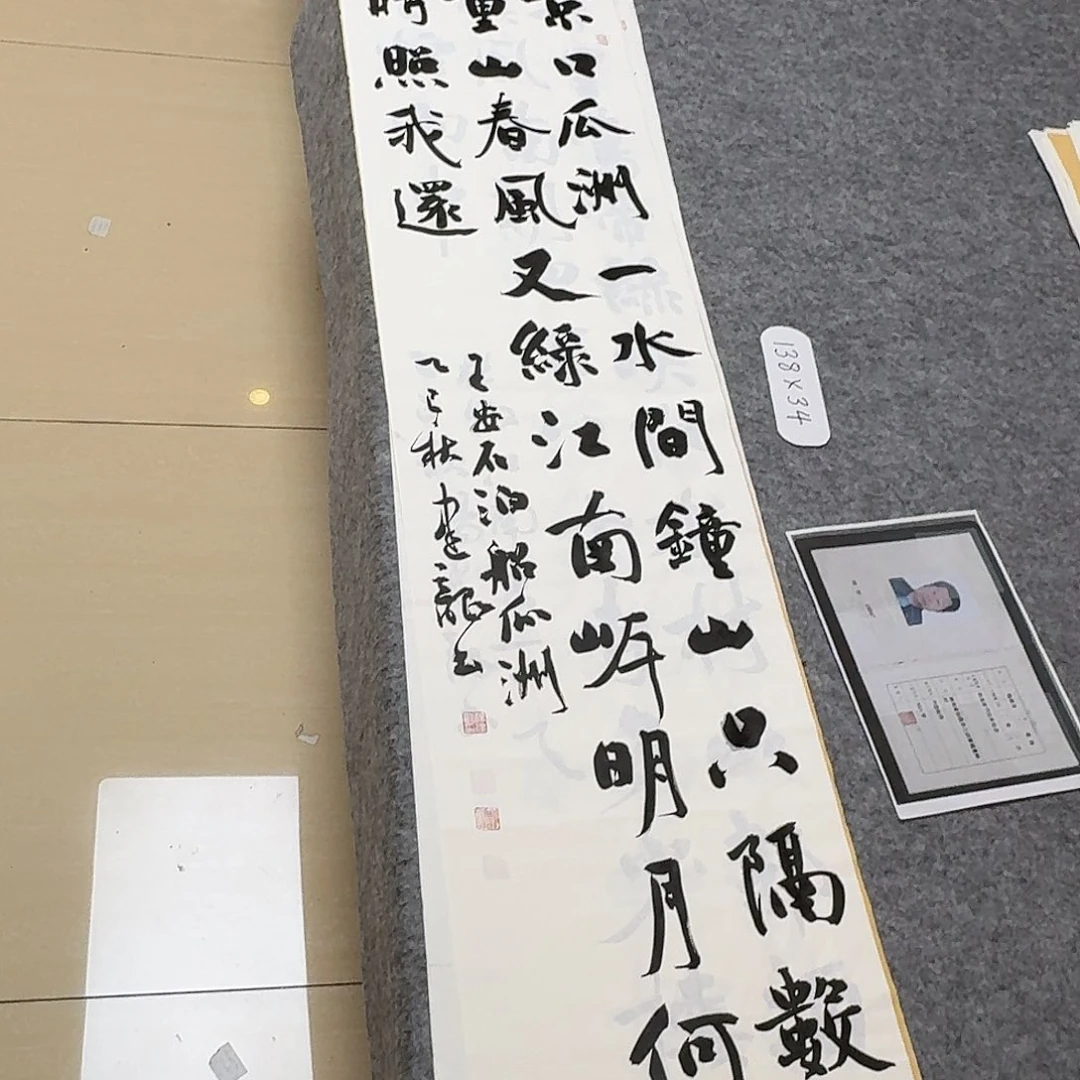 京口瓜洲一水間鐘山只隔數
重山春風又綠江南岸明月何
時照我還
王安石泊船瓜洲
乙巳秋建龍书
138×34